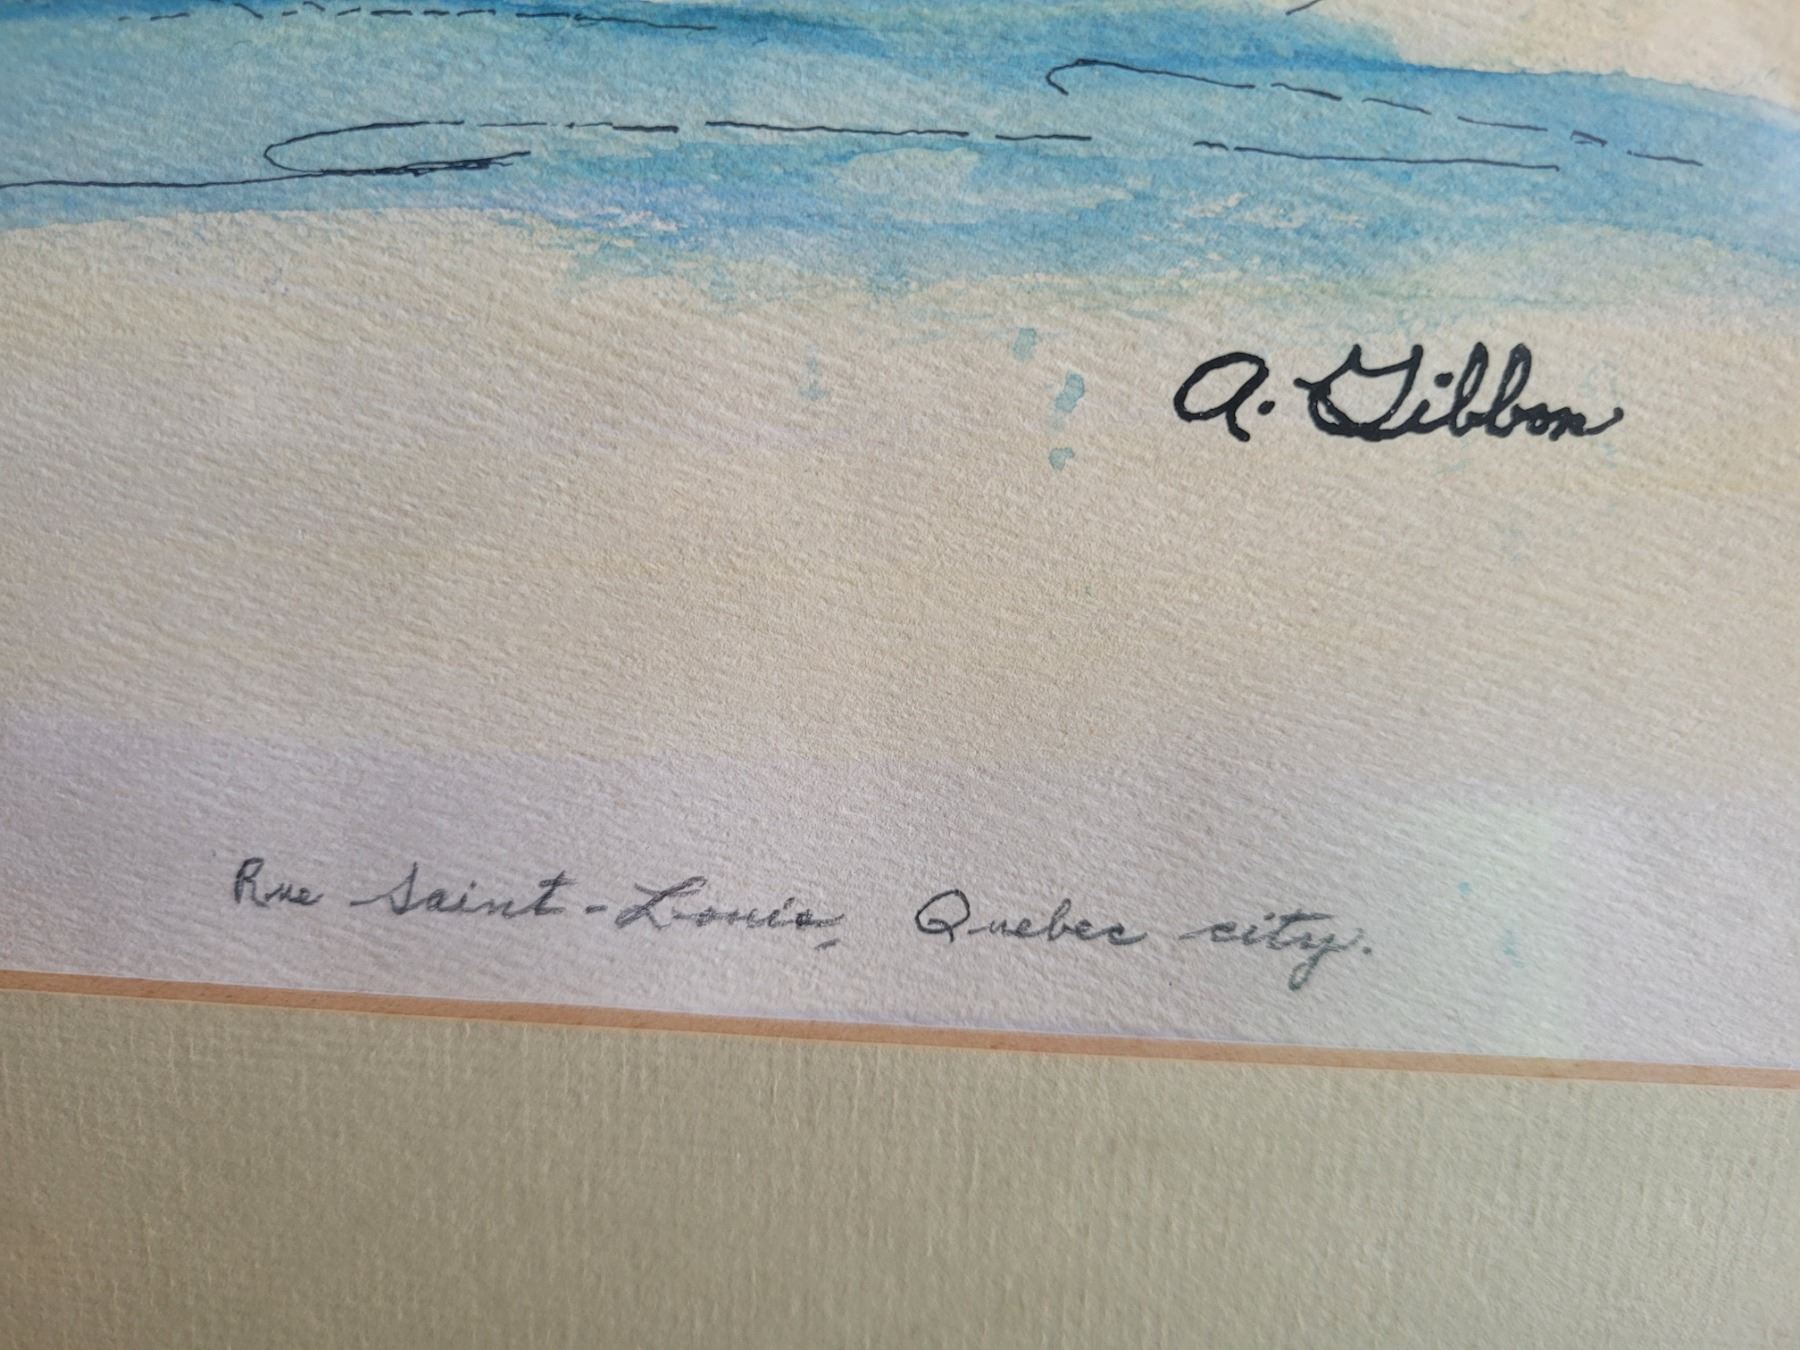 A. Gibbon
Rue Saint-Louis, Quebec city.